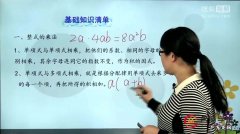 基础知识清单
一、整式的乘法 2a·4ab=8a²b
1、单项式与单项式相乘，把他们的系数，相同的字母
分别相乘，其余字母连同它的指数不变，作为积的因式。
2、单项式与多项式相乘，就是根据分配律用单项式去乘
的每一项，再把所得的积相加。a(a+b)